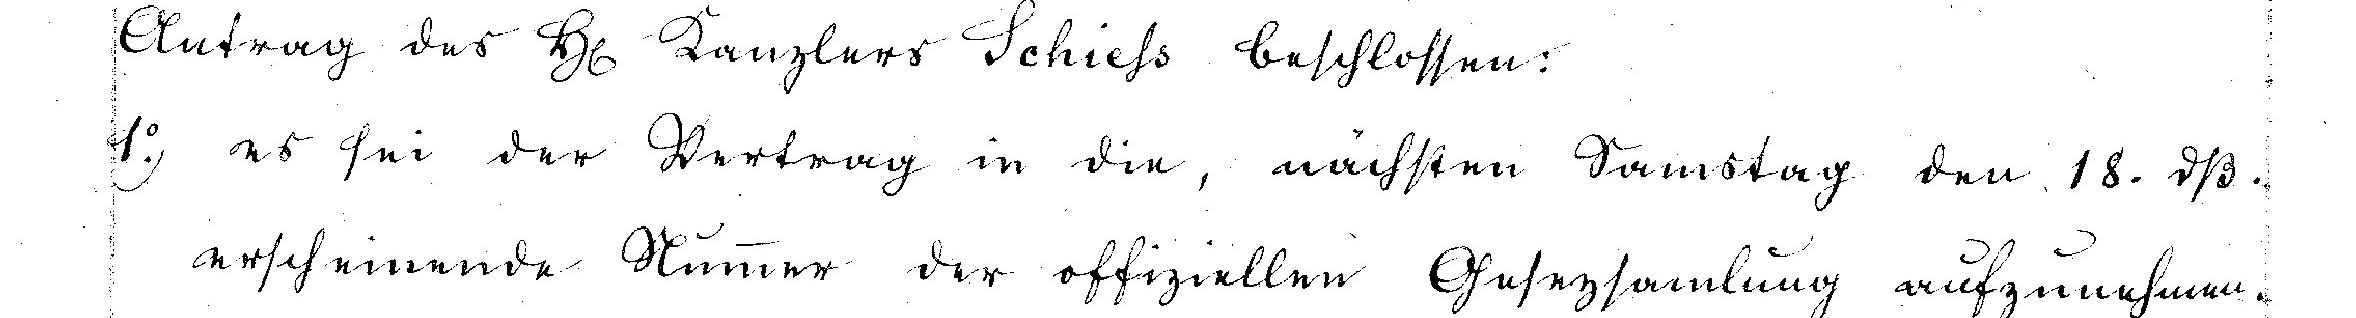 Antrag des H. Kanzlers Schiess beschlossen:
1.) es sei der Vertrag in die, nächsten Samstag den 18. dß.
erscheinende Num̅er der offiziellen Gesezsamlung aufzunehmen.